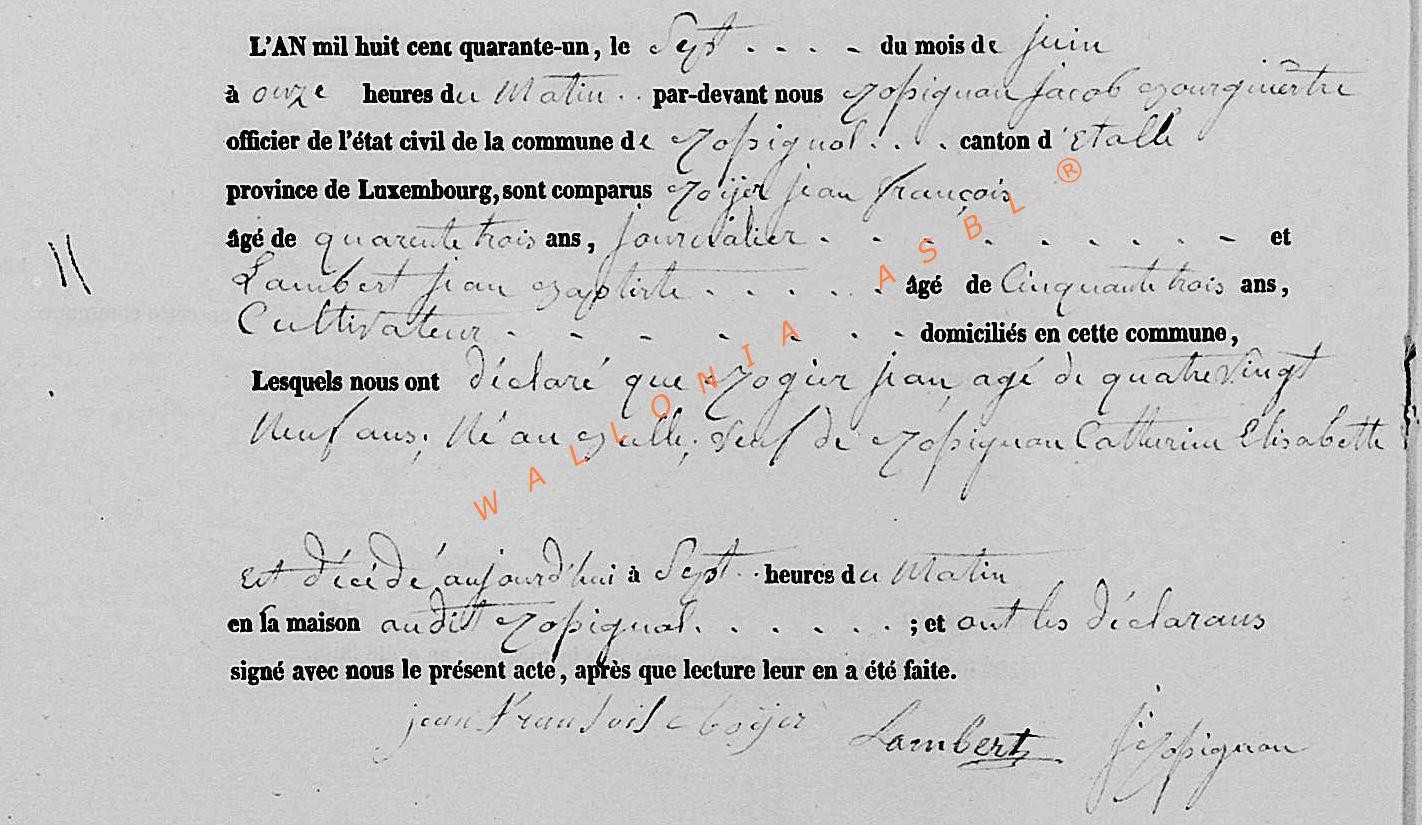 L'AN mil huit cent quarante-un, le Sept . . . . du mois de juin
à onze heures du Matin . . par-devant nous Rossignon Jacob Bourguemêtre
officier de l'état civil de la commune de Rossignol . . . . canton d'Etalle
province de Luxembourg, sont comparus jean françois
âgé de quarente trois ans, Journalier . - - - - - - - - et
Lambert jean Baptiste . . . . . . âgé de Cinquante trois ans,
Cultivateur . - - - - - - domiciliés en cette commune,
Lesquels nous ont déclaré que jean, agé de quatre Vingt
Neuf ans, Né au Bulle, Veuf de Rossignon Catherine Elisabette
Est décédé aujourd'hui à Sept . . heures du Matin
en sa maison audit Rossignol. . . . . . . ; et ont les déclarans
signé avec nous le présent acte, après que lecture leur en a été faite.
jean Fransois Lambert J Rossignon
WALLONIA ASBL ®